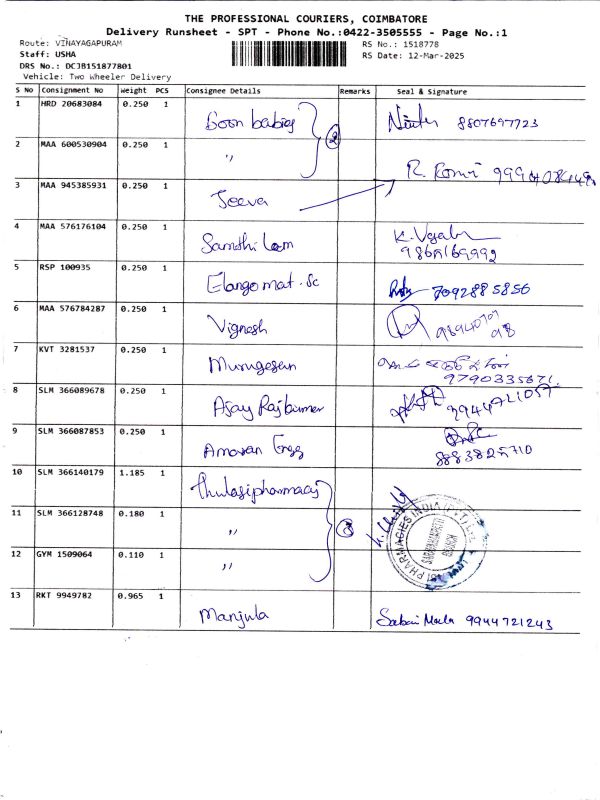 THE PROFESSIONAL COURIERS, COIMBATORE
Delivery Runsheet - SPT - Phone No.:0422-3505555 - Page No.:1
Route: VINAYAGAPURAM
RS No.: 1518778
Staff: USHA
RS Date: 12-Mar-2025
DRS No.: DCJB151877801
Vehicle: Two Wheeler Delivery
S No Consignment No Weight PCS Consignee Details Remarks Seal & Signature
1 HRD 20683084 0.250 1 Goon babies 8807697723
2 MAA 600530904 0.250 1 " 2
3 MAA 945385931 0.250 1 Jeeva
4 MAA 576176104 0.250 1
5 RSP 100935 0.250 1 Elango mat. Sc 7092885856
6 MAA 576784287 0.250 1 Vignesh
7 KVT 3281537 0.250 1 Murugesan
9790335671
8 SLM 366089678 0.250 1 Ajay Rajkumar
9 SLM 366087853 0.250 1
10 SLM 366140179 1.185 1 thulasi pharmacy
11 SLM 366128748 0.180 1 " 3
12 GYM 1509064 0.110 1 "
13 RKT 9949782 0.965 1 Manjula 9944721243
PHARMACIES INDIA (PVT) LTD
BRANCH